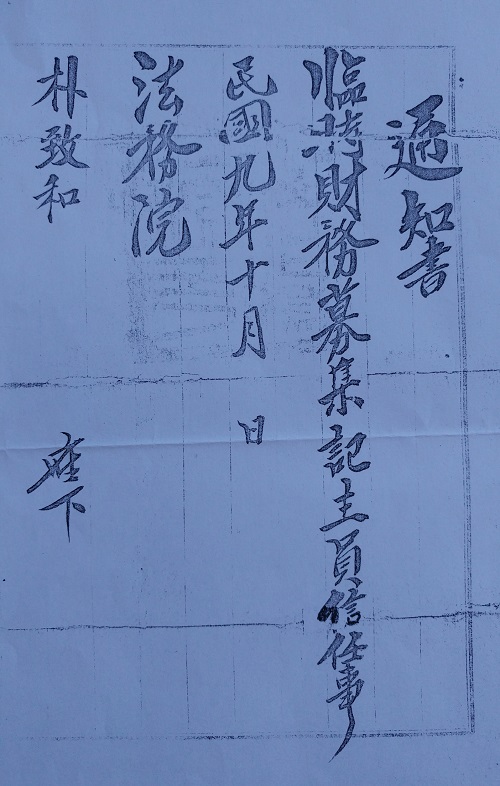 通知書
臨時財務募集記主員信任事
民國九年十月 日
法務院
朴致和 座下